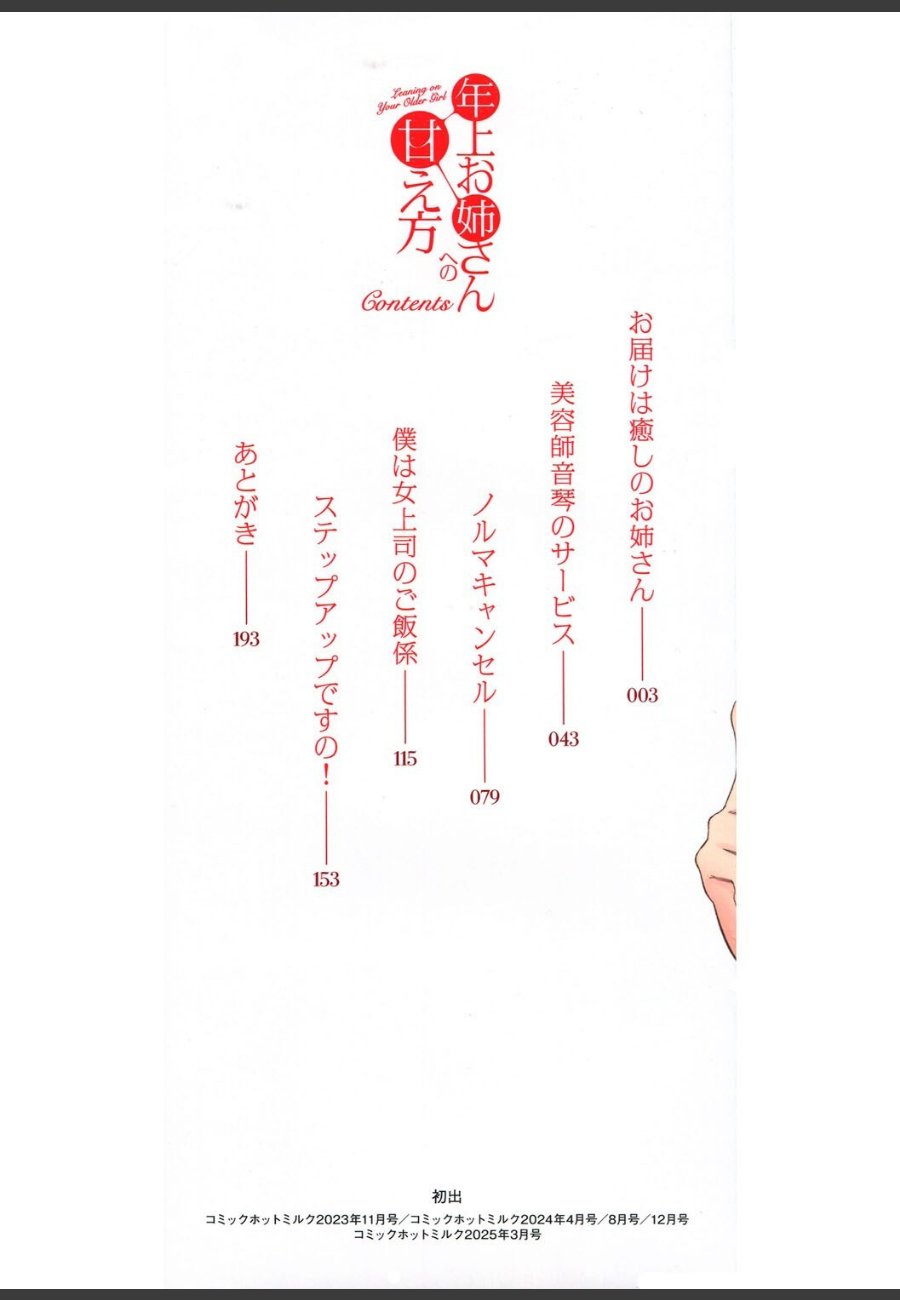 Leaning on
Your Older Girl
年上お姉さん
への
甘え方
Contents
お届けは癒しのお姉さん
003
美容師音琴のサービス
043
ノルマキャンセル
079
僕は女上司のご飯係
115
ステップアップですの!
153
あとがき
193
初出
コミックホットミルク2023年11月号／コミックホットミルク2024年4月号／8月号／12月号
コミックホットミルク2025年3月号